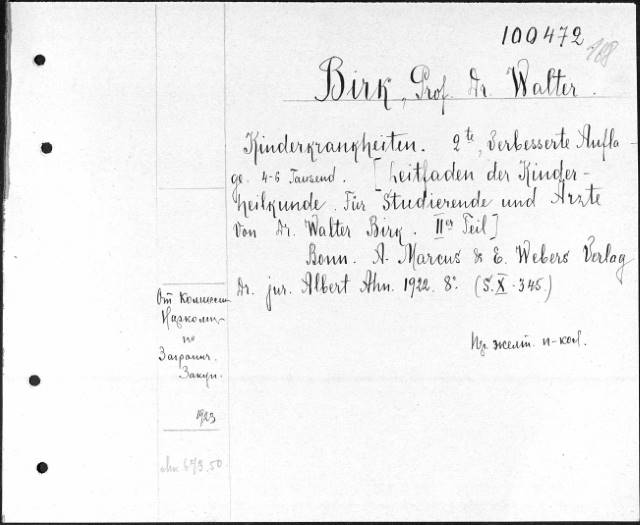 100472
168
Birk, Prof. Dr. Walter.
Kinderkrankheiten. 2te, Verbesserte Aufla-
ge. 4-6 Tausend. [Leitfaden der Kinder-
heilkunde. Für Studierende und Ärzte
von Dr. Walter Birk. IIer Teil]
Bonn. A. Marcus & E. Webers Verlag
Dr. jur. Albert Ahn. 1922. 8°. (S. X + 345.)
От Комиссии
Наркома
по
Загранич.
Закуп.
1923
Пр. желт. п-кол.